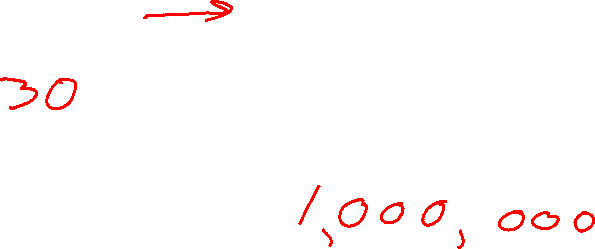 →
30
1,000,000